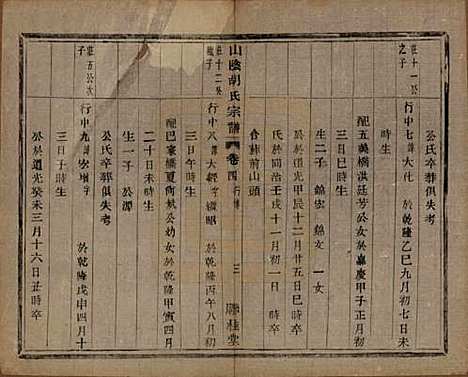 公氏卒葬俱失考
莊十一公
之子
行中七諱大化 於乾隆乙巳九月初七日未
時生
配五義橋洪廷芳公女於嘉慶甲子正月初
三日巳時生
生二子 錦宏 錦文 一女
於道光甲辰十二月廿五日巳時卒
氏於同治壬戌十一月初一日 時卒
合葬前山頭
莊十二公
子
行中八諱大經字 於乾隆丙午八月初
山陰胡氏宗譜 卷四 行傳 三 聯桂堂
三日午時生
配巴家橋夏尚 公幼女於乾隆甲寅四月
二十日未時生
生一子 公潭
公氏卒葬俱失考
莊五公次
子
行中九諱宏增字 於乾隆戊申四月十
三日子時生
公於道光癸未三月十六日丑時卒